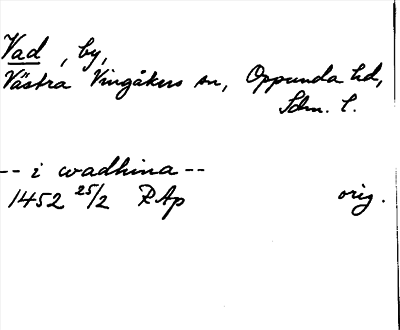 Vad, by,
Västra Vingåkers sn, Oppunda hd,
Sdm. l.
-- i wadhina --
1452 25/2 RAp orig.